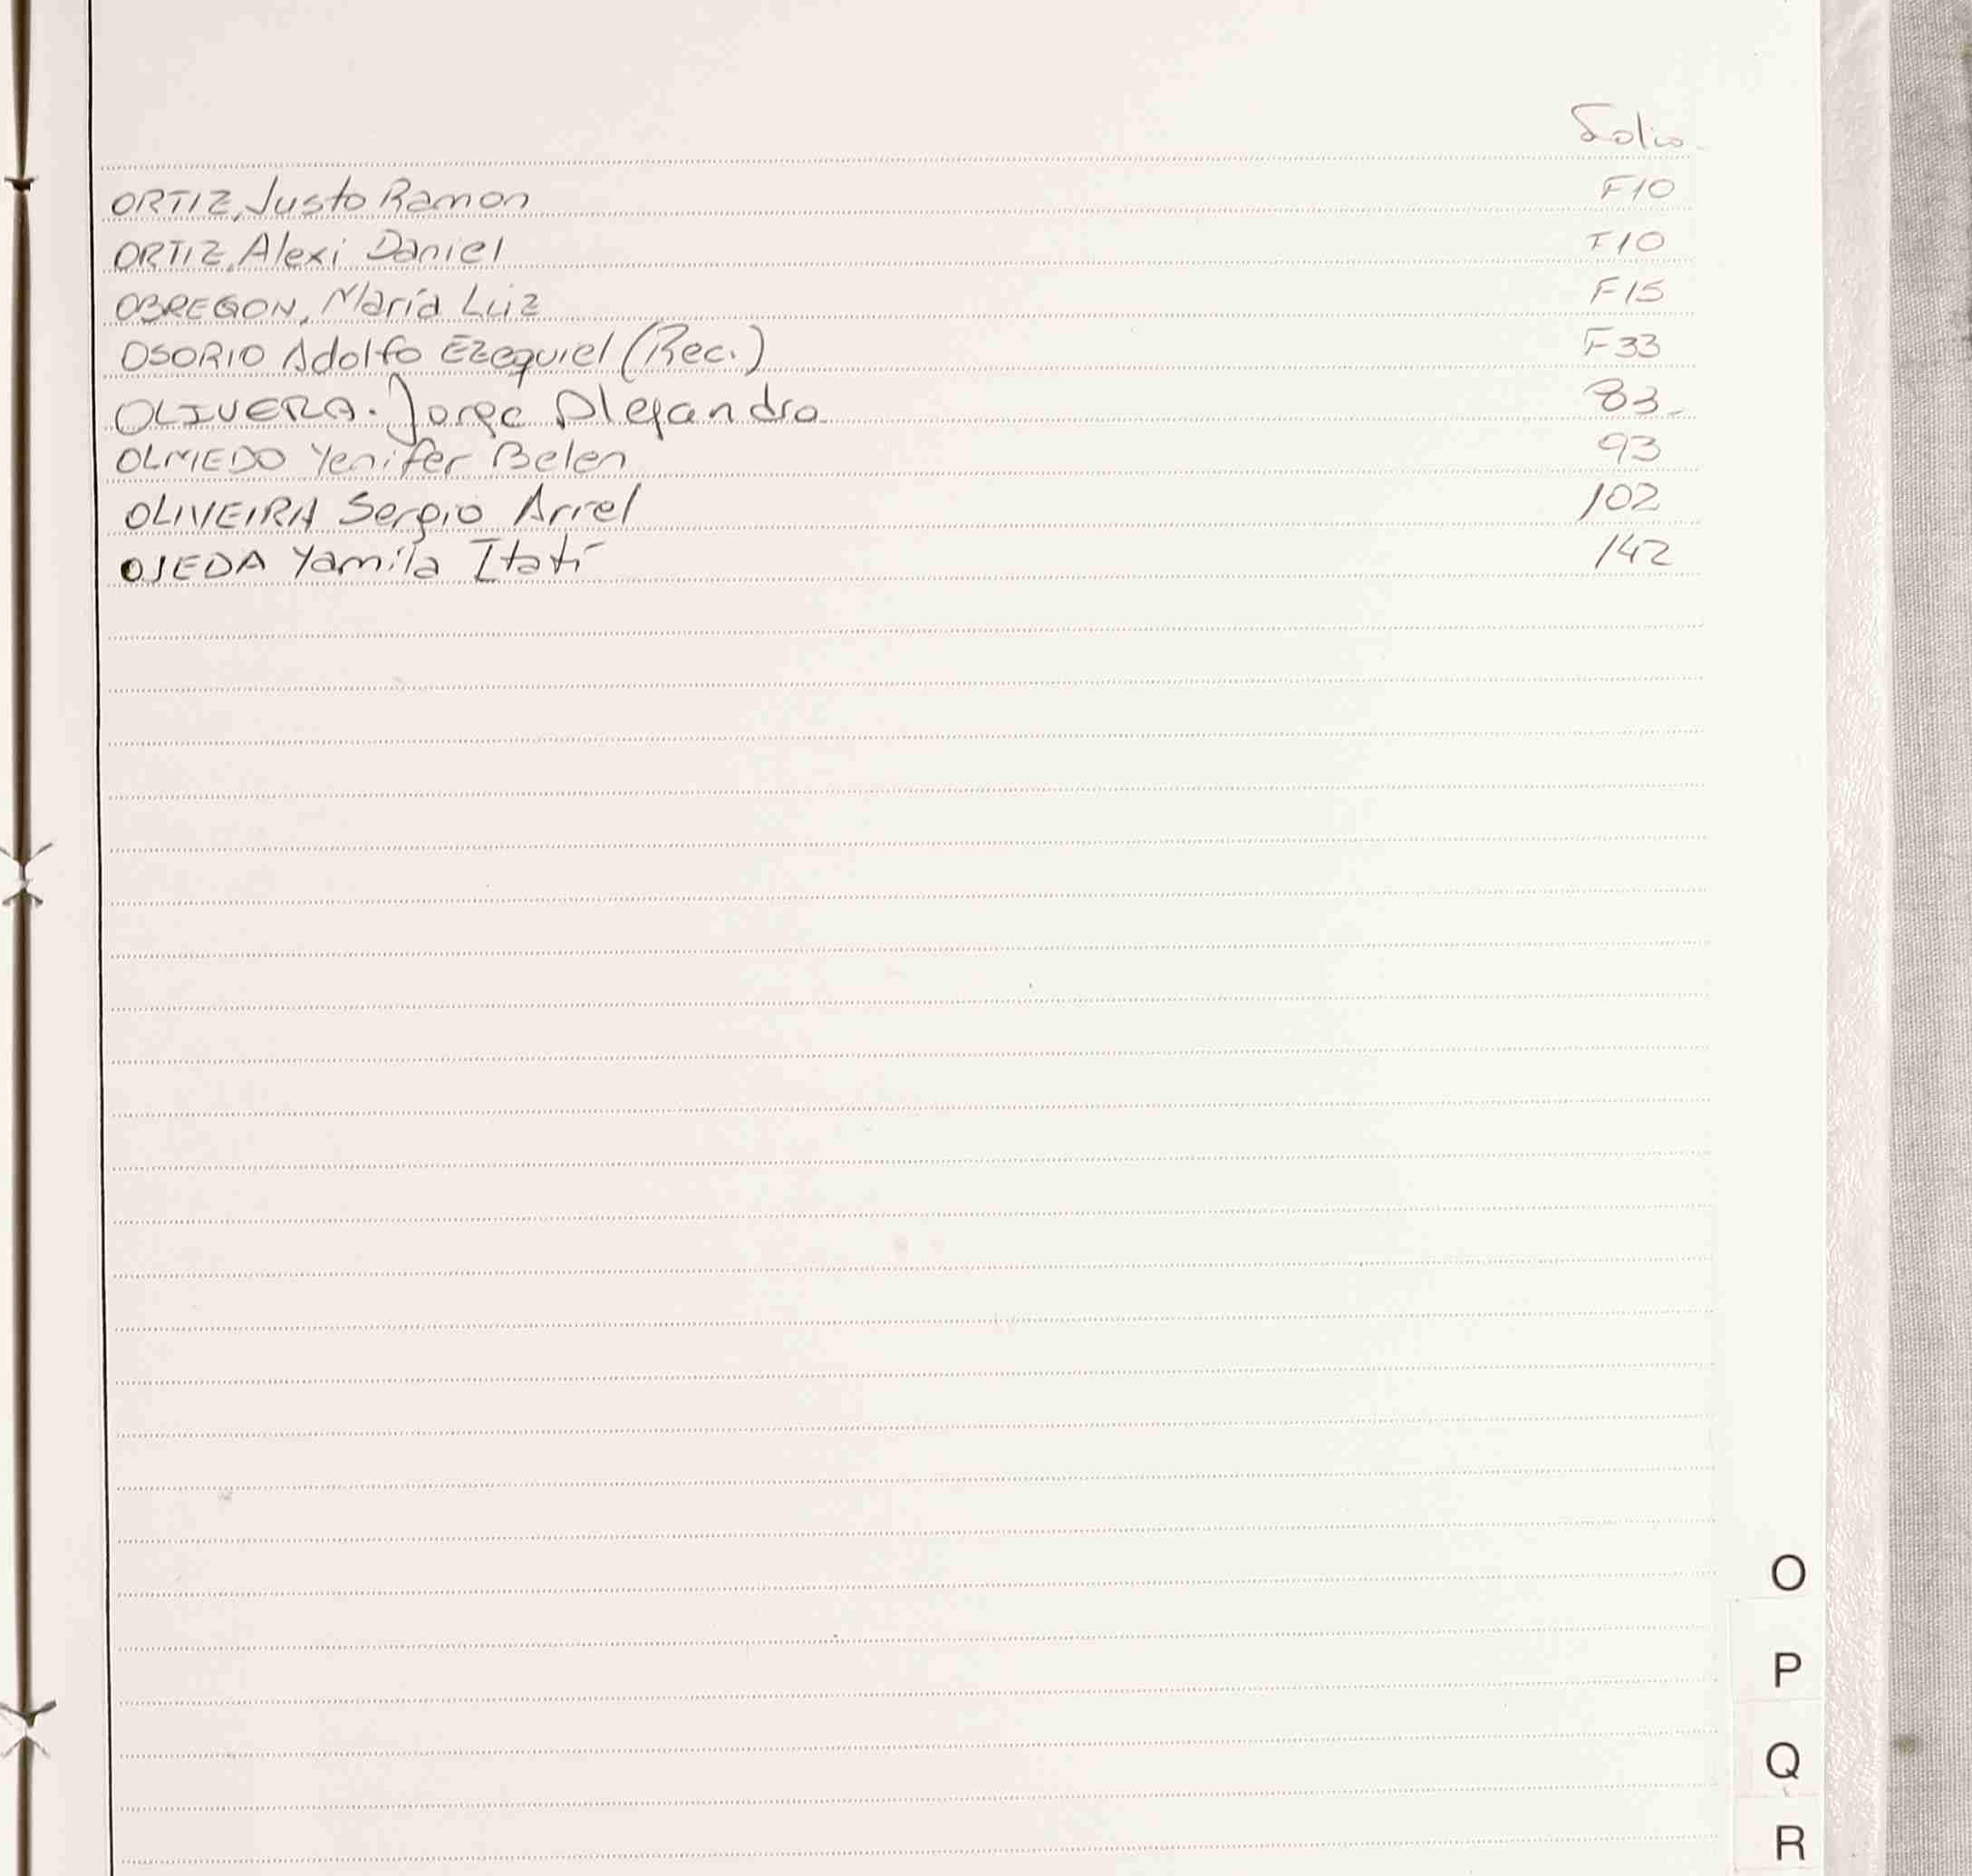 Folio
ORTIZ, Justo Ramon F10
ORTIZ, Alexi Daniel F10
OBREGON, María Luz F15
OSORIO Adolfo Ezequiel (Rec.) F33
OLIVERA. Jorge Alejandro 83
OLMEDO Yenifer Belen 93
OLIVEIRA Sergio Ariel 102
OJEDA Yamila Itatí 142
O
P
Q
R